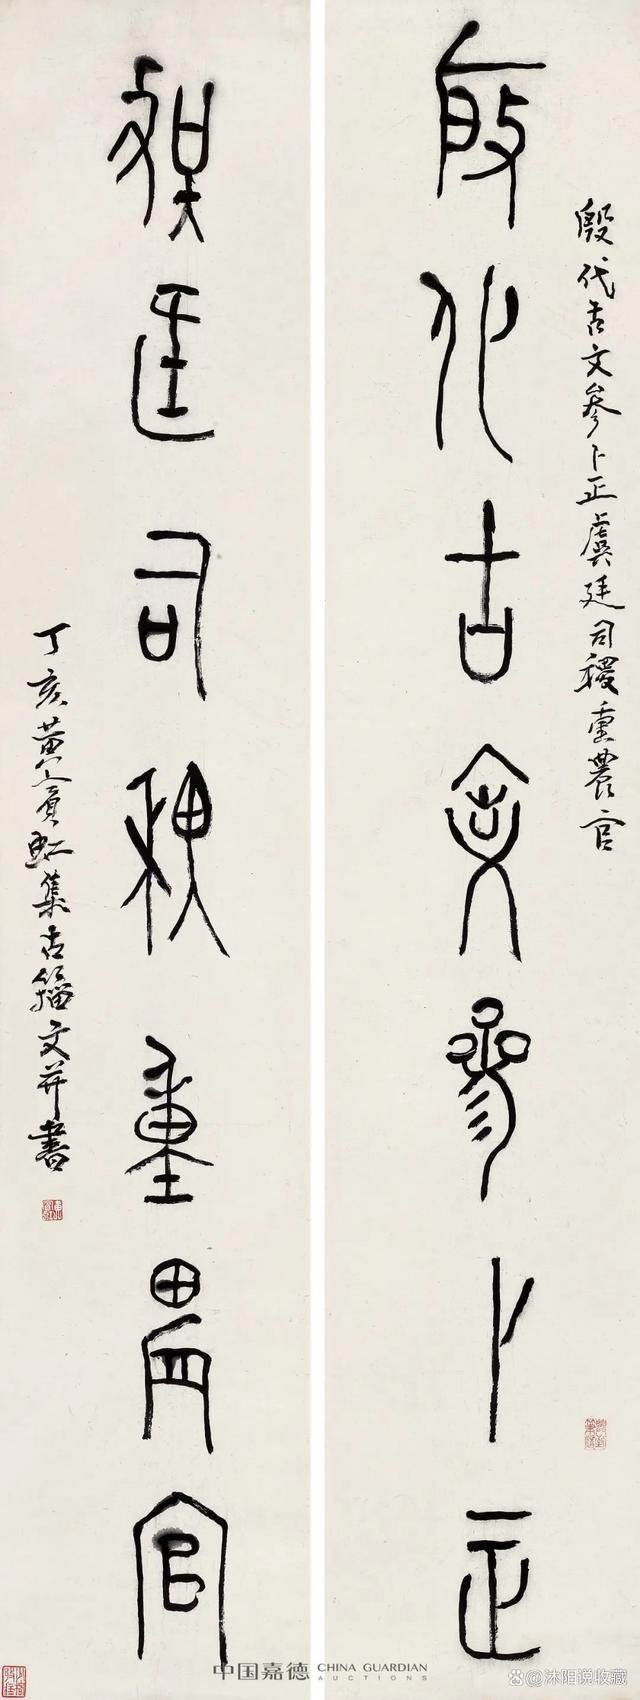 殷代古文參卜正虞廷司稷重農官
殷代古文參卜正
虞廷司稷重農官
丁亥黄賓虹集古籀文并書
中国嘉德 CHINA GUARDIAN
AUCTIONS
@沐阳说收藏